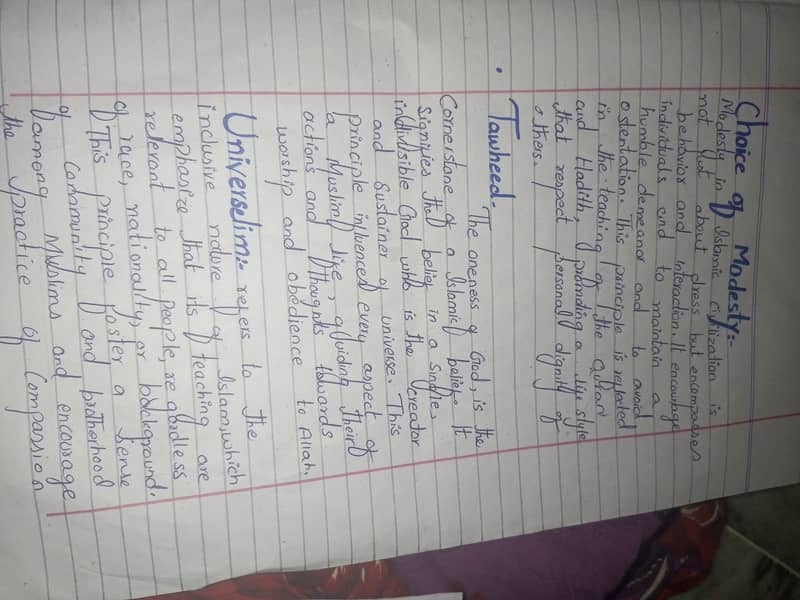 Choice of Modesty:-
Modesty in Islamic civilization is
not just about dress but encompasses
behavior and interaction. It encourage
individuals and to maintain a
humble demeanor and to avoid
ostentation. This principle is reflected
in the teaching of the Quran
and Hadith, promoting a life style
that respect personal dignity of
others.
Tawheed.
The oneness of God, is the
Cornerstone of a Islamic belief. It
signifies the belief in a Single,
indivisible God who is the Creator
and Sustainer of universe. This
principle influenced every aspect of
a Muslim life, guiding their
actions and thoughts towards
worship and obedience to Allah.
Universelim:- refers to the
inclusive nature of Islam, which
emphasize that its teaching are
relevant to all people, regardless
of race, nationality, or background.
This principle foster a sense
of community and brotherhood
among Muslims and encourage
the practice of Compassion